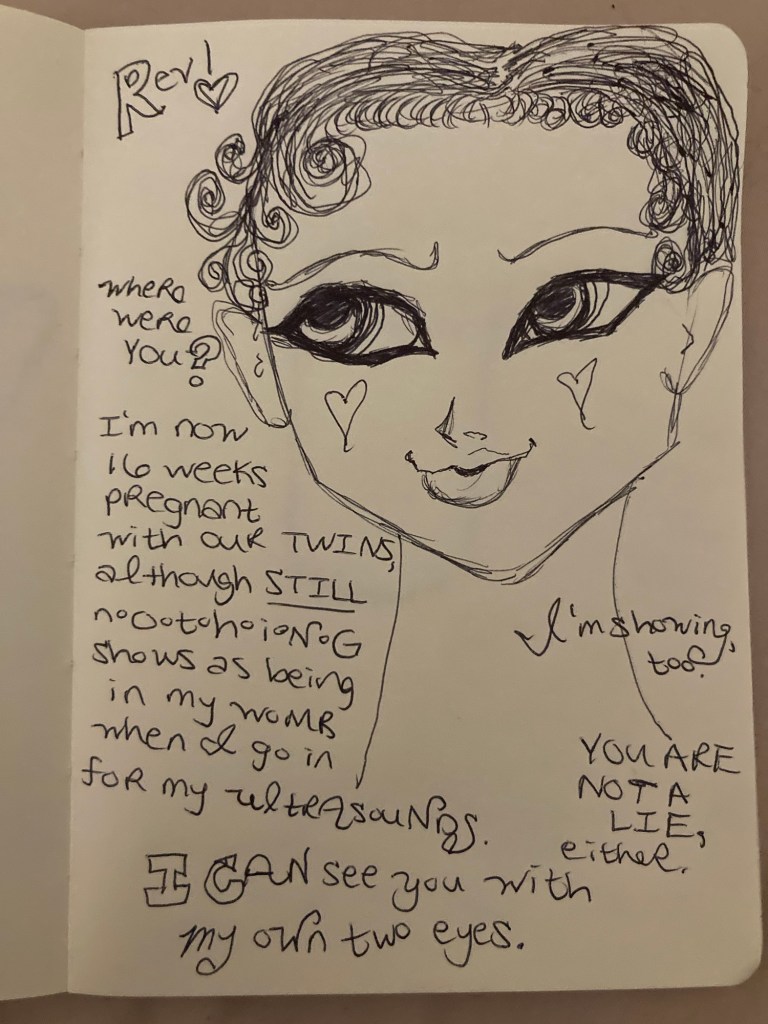 Rev!
where
were
you?
I'm now
16 weeks
pregnant
with our TWINS,
although STILL
n°O°t°h°i°N°G
shows as being
in my womb
when I go in
for my ultrasounds.
I'm showing,
too.
YOU ARE
NOT A
LIE,
either.
I CAN see you with
my own two eyes.